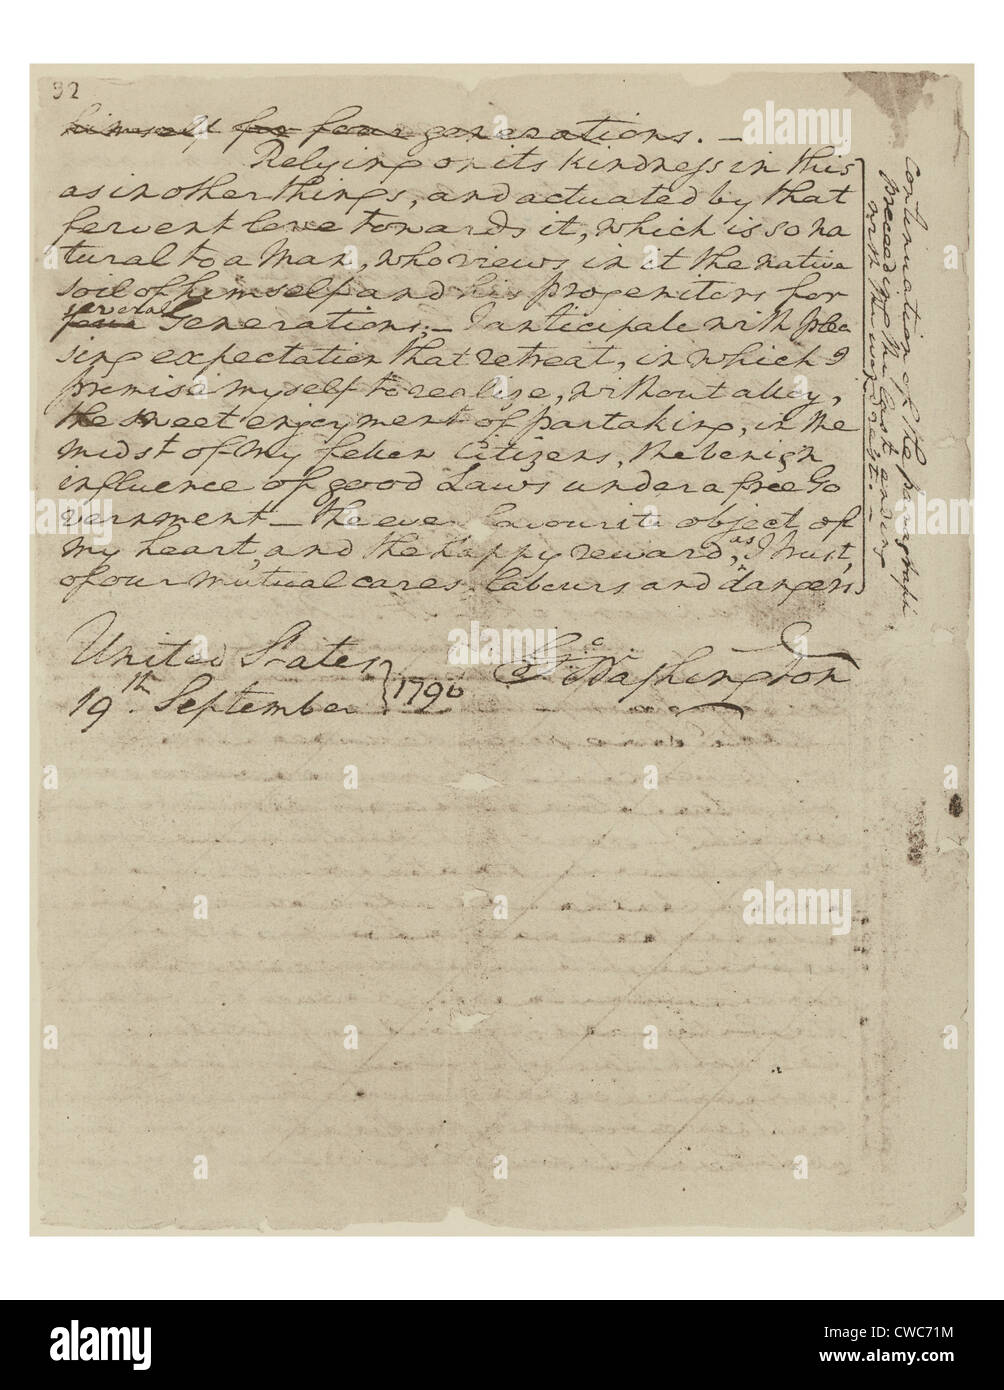 32
himself for four generations. —
Relying on its kindness in this
as in other things, and actuated by that
fervent love towards it, which is so na
tural to a Man, who views in it the native
soil of himself and his progenitors for
several
four Generations; — I anticipate with plea
sing expectation that retreat, in which I
promise myself to realize, without alloy,
the sweet enjoyment of partaking, in the
midst of my fellow Citizens, the benign
influence of good Laws under a free Go
vernment — the ever favourite object of
my heart, and the happy reward, as I trust,
of our mutual cares labours and dangers.
United States
19th September } 1796
Go Washington
Continuation of the paragraph
preceeding the last ending
with the word rest. —
alamy
alamy
Image ID: CWC71M
www.alamy.com